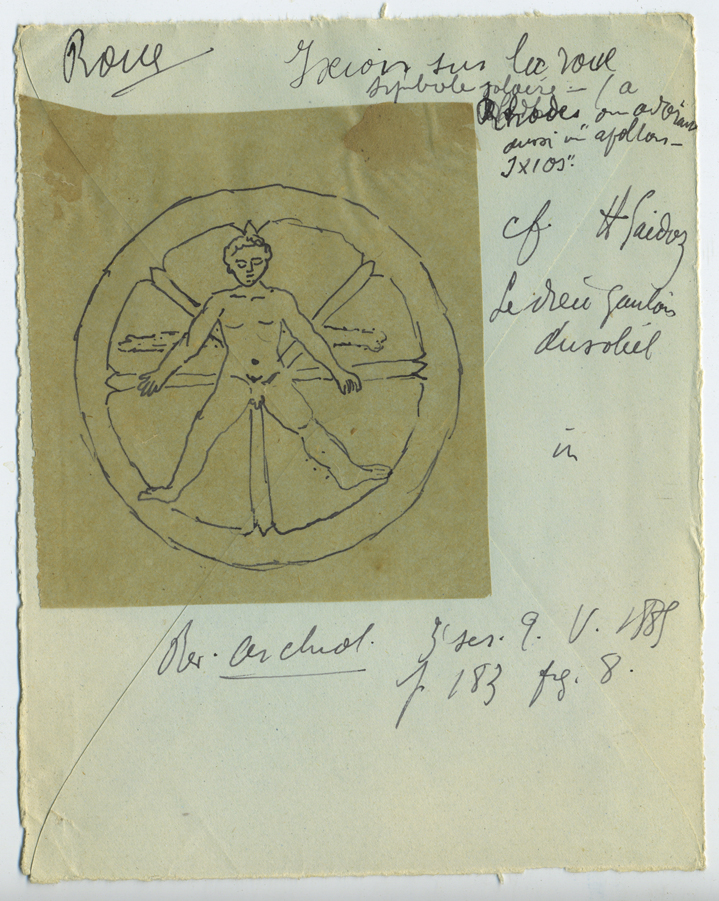 Roue
Ixion sur la roue
symbole solaire – (a
Rhodes on adorait
aussi un "apollon –
IXIOS".
cf H Gaidoz
Le dieu gaulois
du soleil
in
Rev. archéol. 3 ser. 9. V. 1885
p 183 fig. 8.